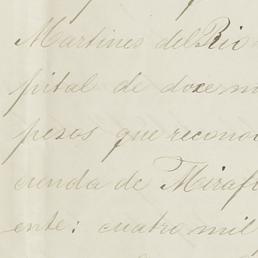 Martines del Rio
pital de doce m
pesos que recono
cienda de Miraf
ente: cuatro mil